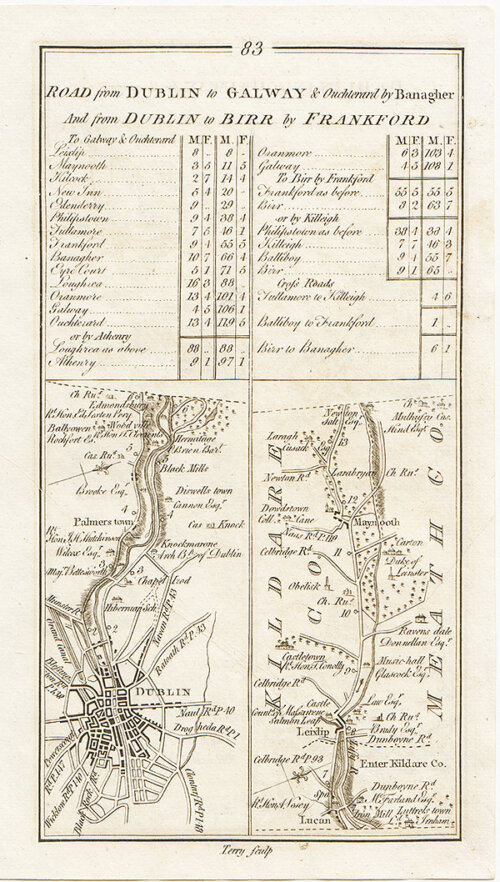 83
ROAD from DUBLIN to GALWAY & Ouchterard by Banagher
And from DUBLIN to BIRR by FRANKFORD
To Galway & Ouchterard M. F. M. F.
Leixlip 8 .. 8 ..
Maynooth 3 5 11 5
Kilcock 2 7 14 4
New Inn 5 4 20 ..
Edenderry 9 .. 29 ..
Philipstown 9 4 38 4
Tullamore 7 5 46 1
Frankford 9 4 55 5
Banagher 10 7 66 4
Eyre Court 5 1 71 5
Loughrea 16 3 88
Oranmore 13 4 101 4
Galway 4 5 106 1
Ouchterard 13 4 119 5
or by Athenry
Loughrea as above 88 .. 88 ..
Athenry 9 1 97 1
M. F. M. F.
Oranmore 6 3 103 4
Galway 4 5 108 1
To Birr by Frankford
Frankford as before 55 5 55 5
Birr 8 2 63 7
or by Killeigh
Philipstown as before 38 4 38 4
Killeigh 7 7 46 3
Balliboy 9 4 55 7
Birr 9 1 65 ..
Cross Roads
Tullamore to Killeigh 4 6
Balliboy to Frankford 1 ..
Birr to Banagher 6 1
Ch Ru.
Edmondsbury
Rt. Hon. Ed. Sexten Pery
Ballyowen
Wood ville
Rt. Hon. H. Clements
Rochfort Esr.
Hermitage
Brien Bart.
Cas Ru.
Black Mills
Brooke Esqr.
Dirwells town
Gannon Esqr.
Palmers town
Cas
Knock
Rt. Hon. J.H. Hutchinson
Knockmarone
Wilcox Esqr.
Arch Bp. of Dublin
Maj. Bettesworth
Chapel Izod
Hibernian Sch.
Munster Rd.
Navan Rd. P. 43
Grand Canal
Ratoath Rd. P. 43
DUBLIN
Naul Rd. P. 40
Drogheda Rd. P. 1
Rd. P. 147
Wicklow Rd. P. 140
Black Rock Rd.
Rd. P. 140
Ch Ru.
Mulhussy Cas.
Hind Esqr.
Laragh
Cusack Esqr.
Newton Rd.
Larabryan
Ch Ru.
Dowdstown
Coll. Cane
Maynooth
Naas Rd. P. 119
Carton
Duke of Leinster
Celbridge Rd.
Obelisk
Ch. Ru.
Ravens dale
Donnellan Esqr.
Castletown
Rt. Hon. T. Conolly
Music hall
Glascock Esqr.
Celbridge Rd.
KILDARE CO.
MEATH CO.
Castle
Law Esqr.
Count. of Massarene
Salmon Leap
Ch Ru.
Brady Esqr.
Leixlip
Dunboyne Rd.
Enter Kildare Co.
Celbridge Rd. P. 93
Dunboyne Rd.
McFarland Esqr.
Rt. Hon. A. Vesey
Spa
Iron Mill
Luttrels town
Lucan
Irnham
Terry sculp